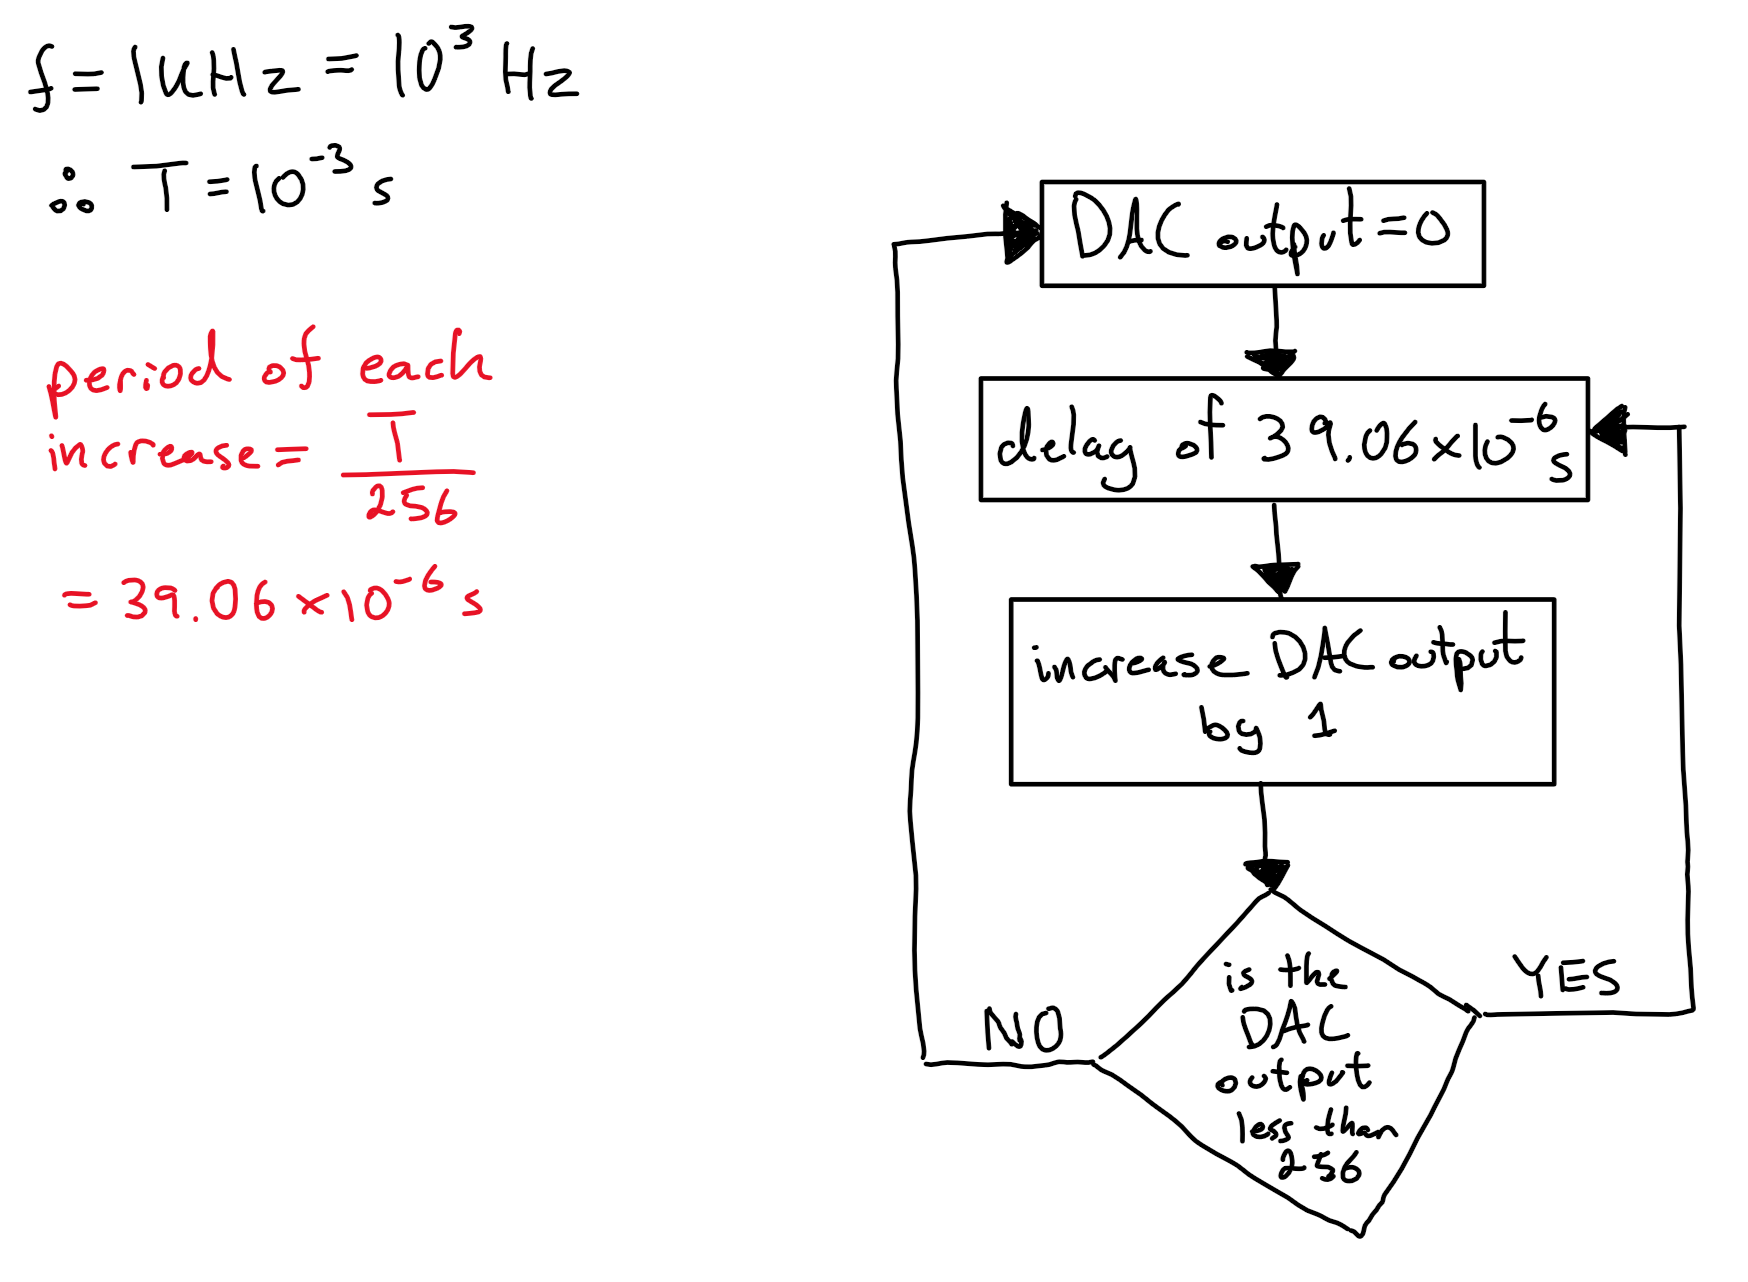 f = 1kHz = 10³ Hz
∴ T = 10⁻³ s
period of each
increase = T/256
= 39.06 × 10⁻⁶ s
DAC output = 0
delay of 39.06×10⁻⁶ s
increase DAC output
by 1
is the
DAC
output
less than
256
NO
YES